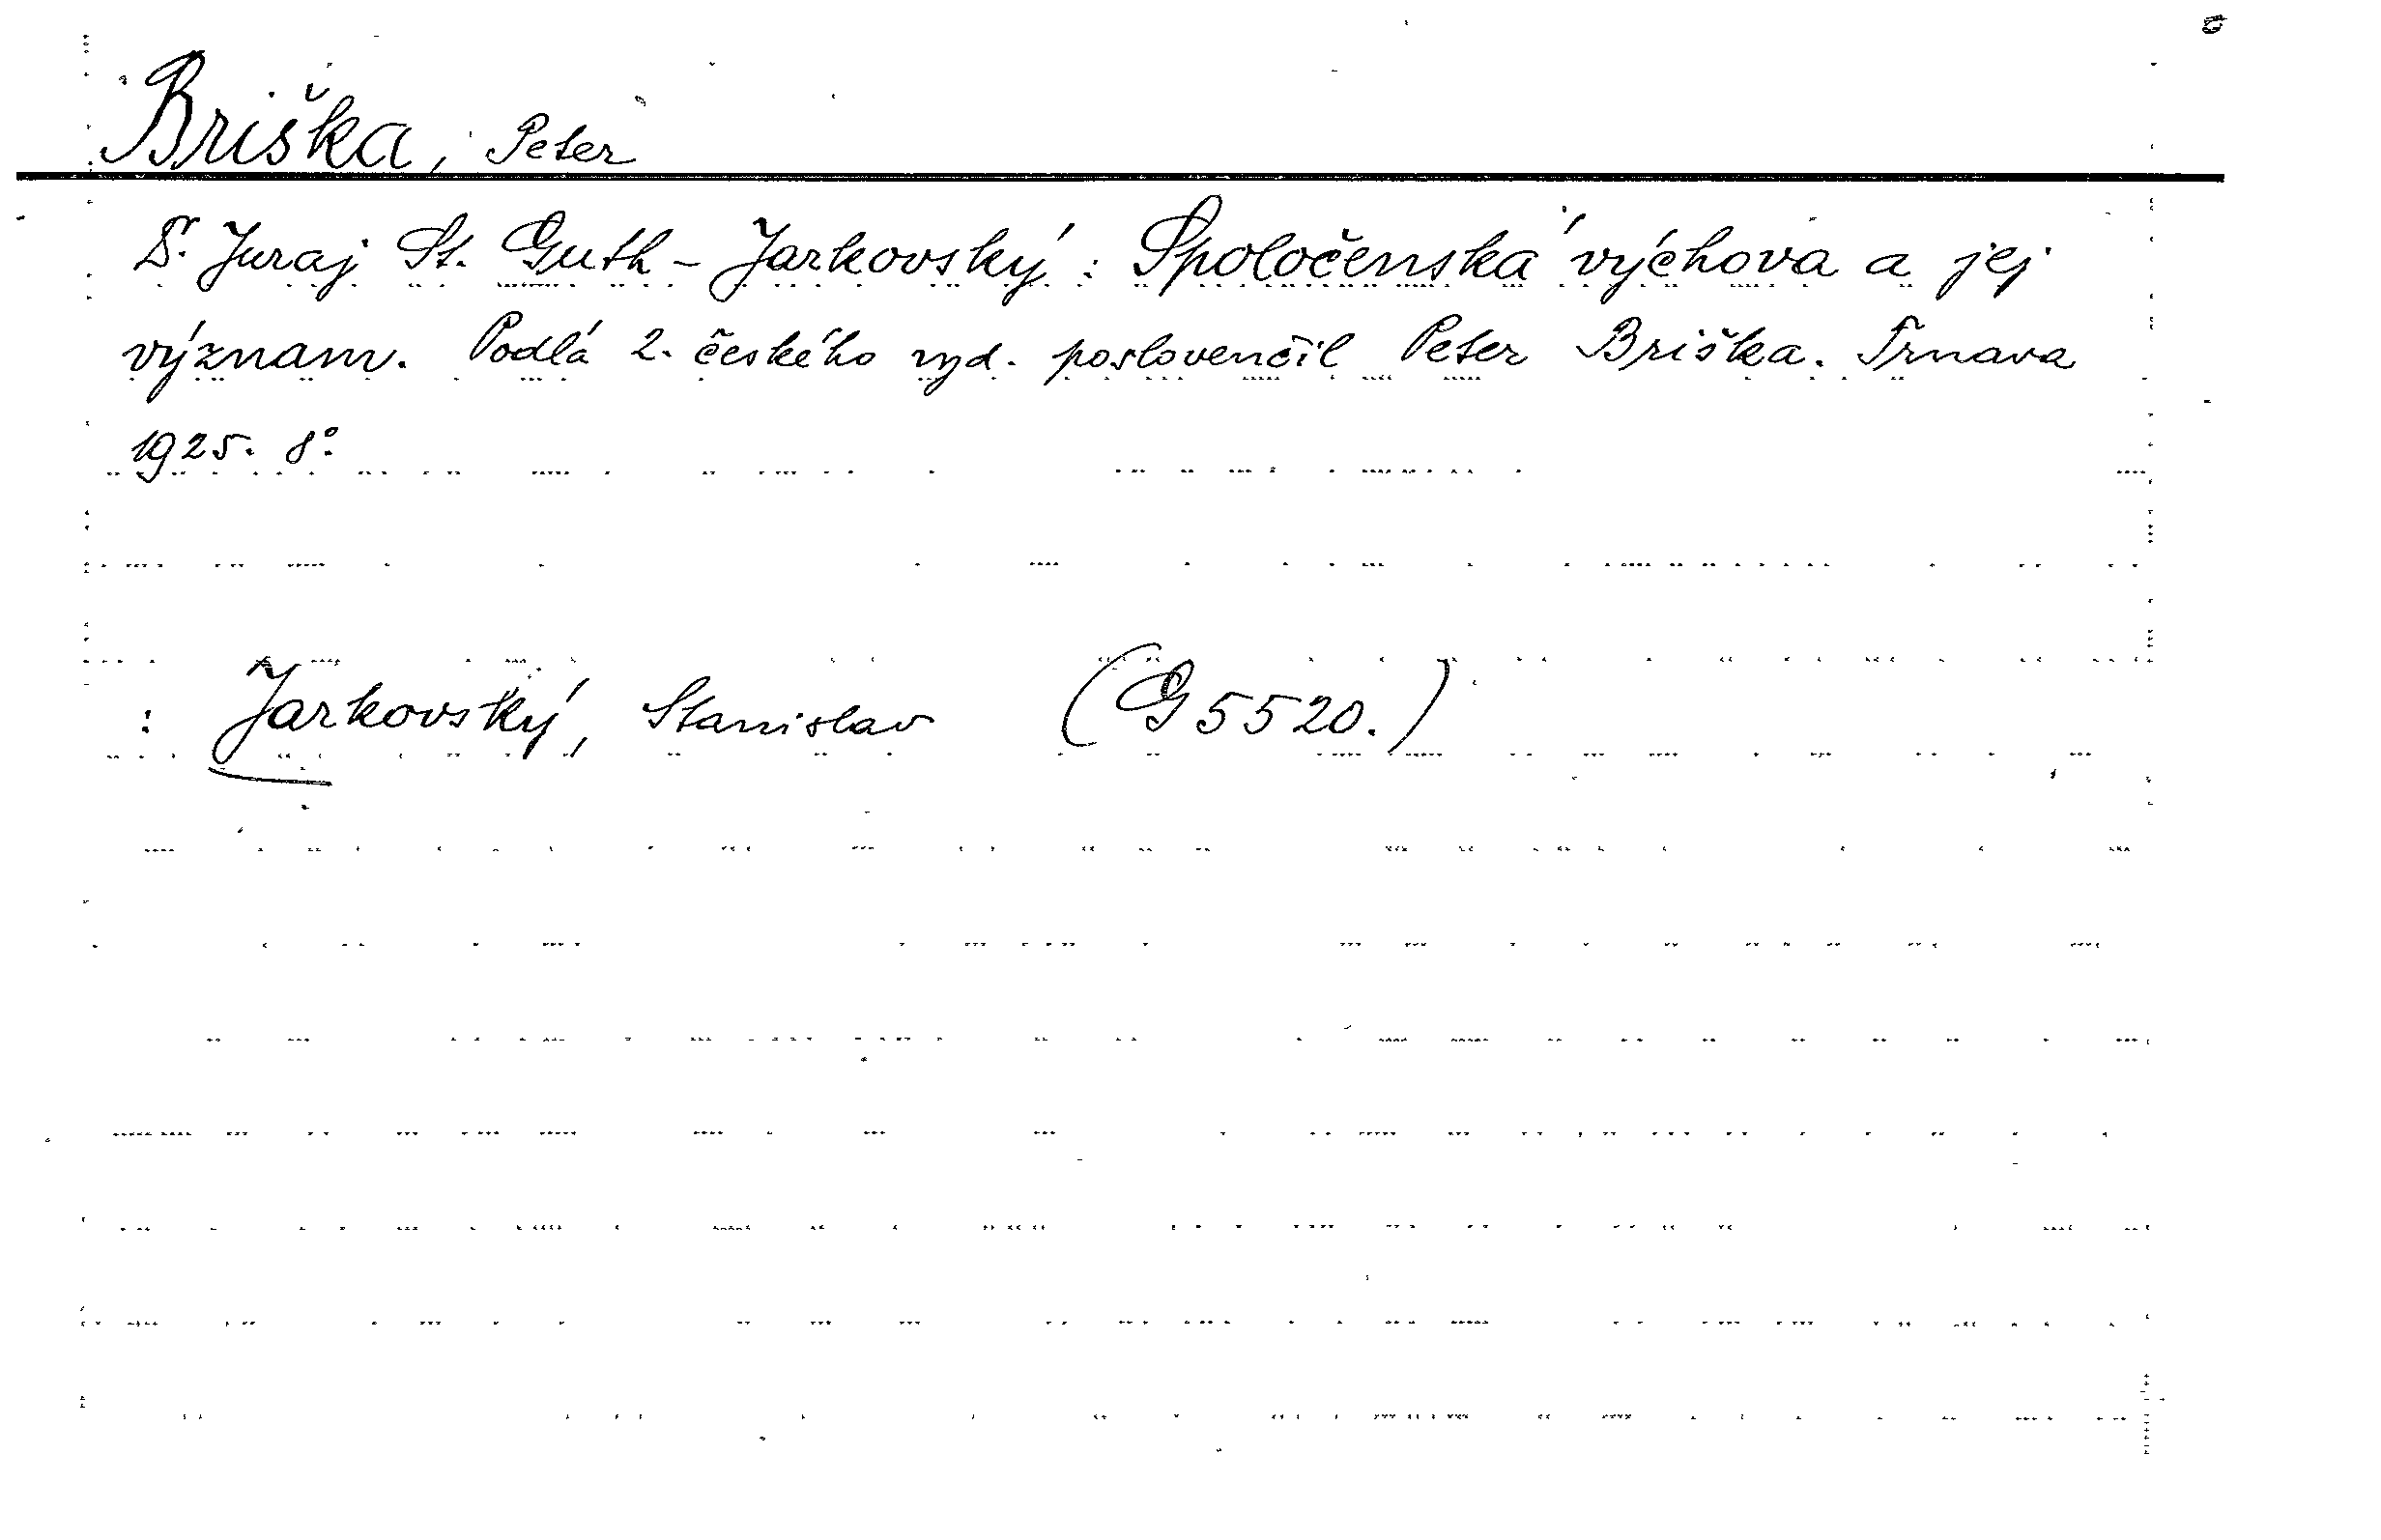 Briška, Peter
Dr. Juraj St. Guth - Jarkovský : Spoločenská výchova a jej
význam. Podlá 2. českého vyd. poslovenčil Peter Briška. Trnava
1925. 8°.
: Jarkovský, Stanislav (G 5520.)